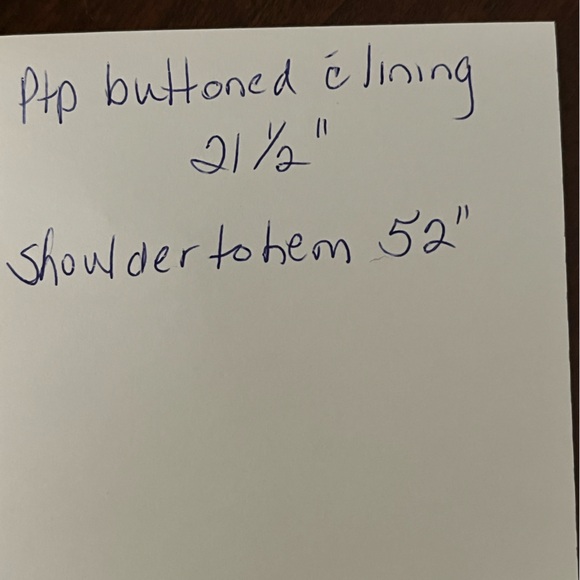 Ptp buttoned c̄ lining
21 1/2"
Shoulder to hem 52"